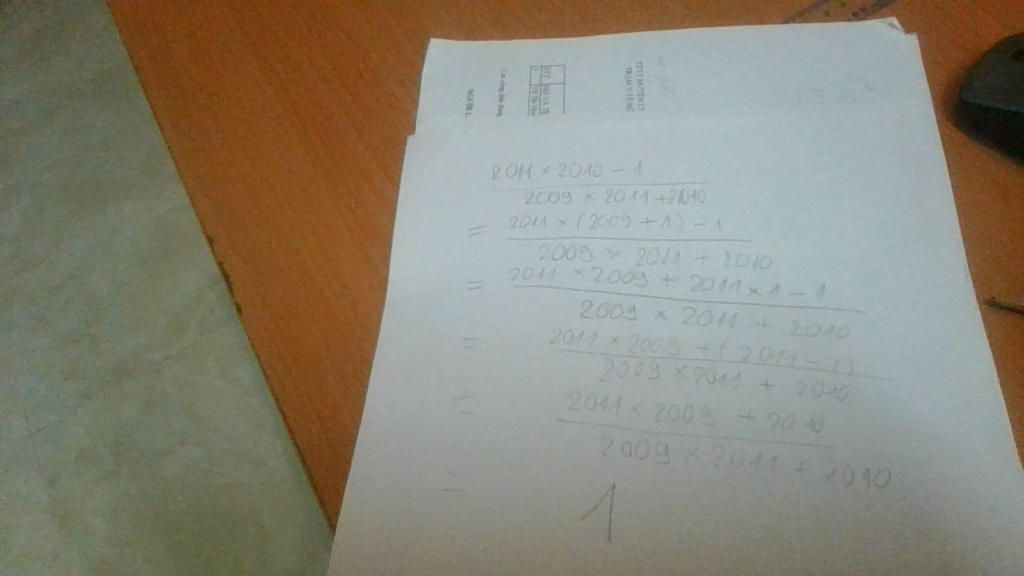 2011 × 2010 - 1
2009 × 2011 + 2010
= 2011 × (2009 + 1) - 1
2009 × 2011 + 2010
= 2011 × 2009 + 2011 × 1 - 1
2009 × 2011 + 2010
= 2011 × 2009 + (2011 - 1)
2009 × 2011 + 2010
= 2011 × 2009 + 2010
2009 × 2011 + 2010
= 1